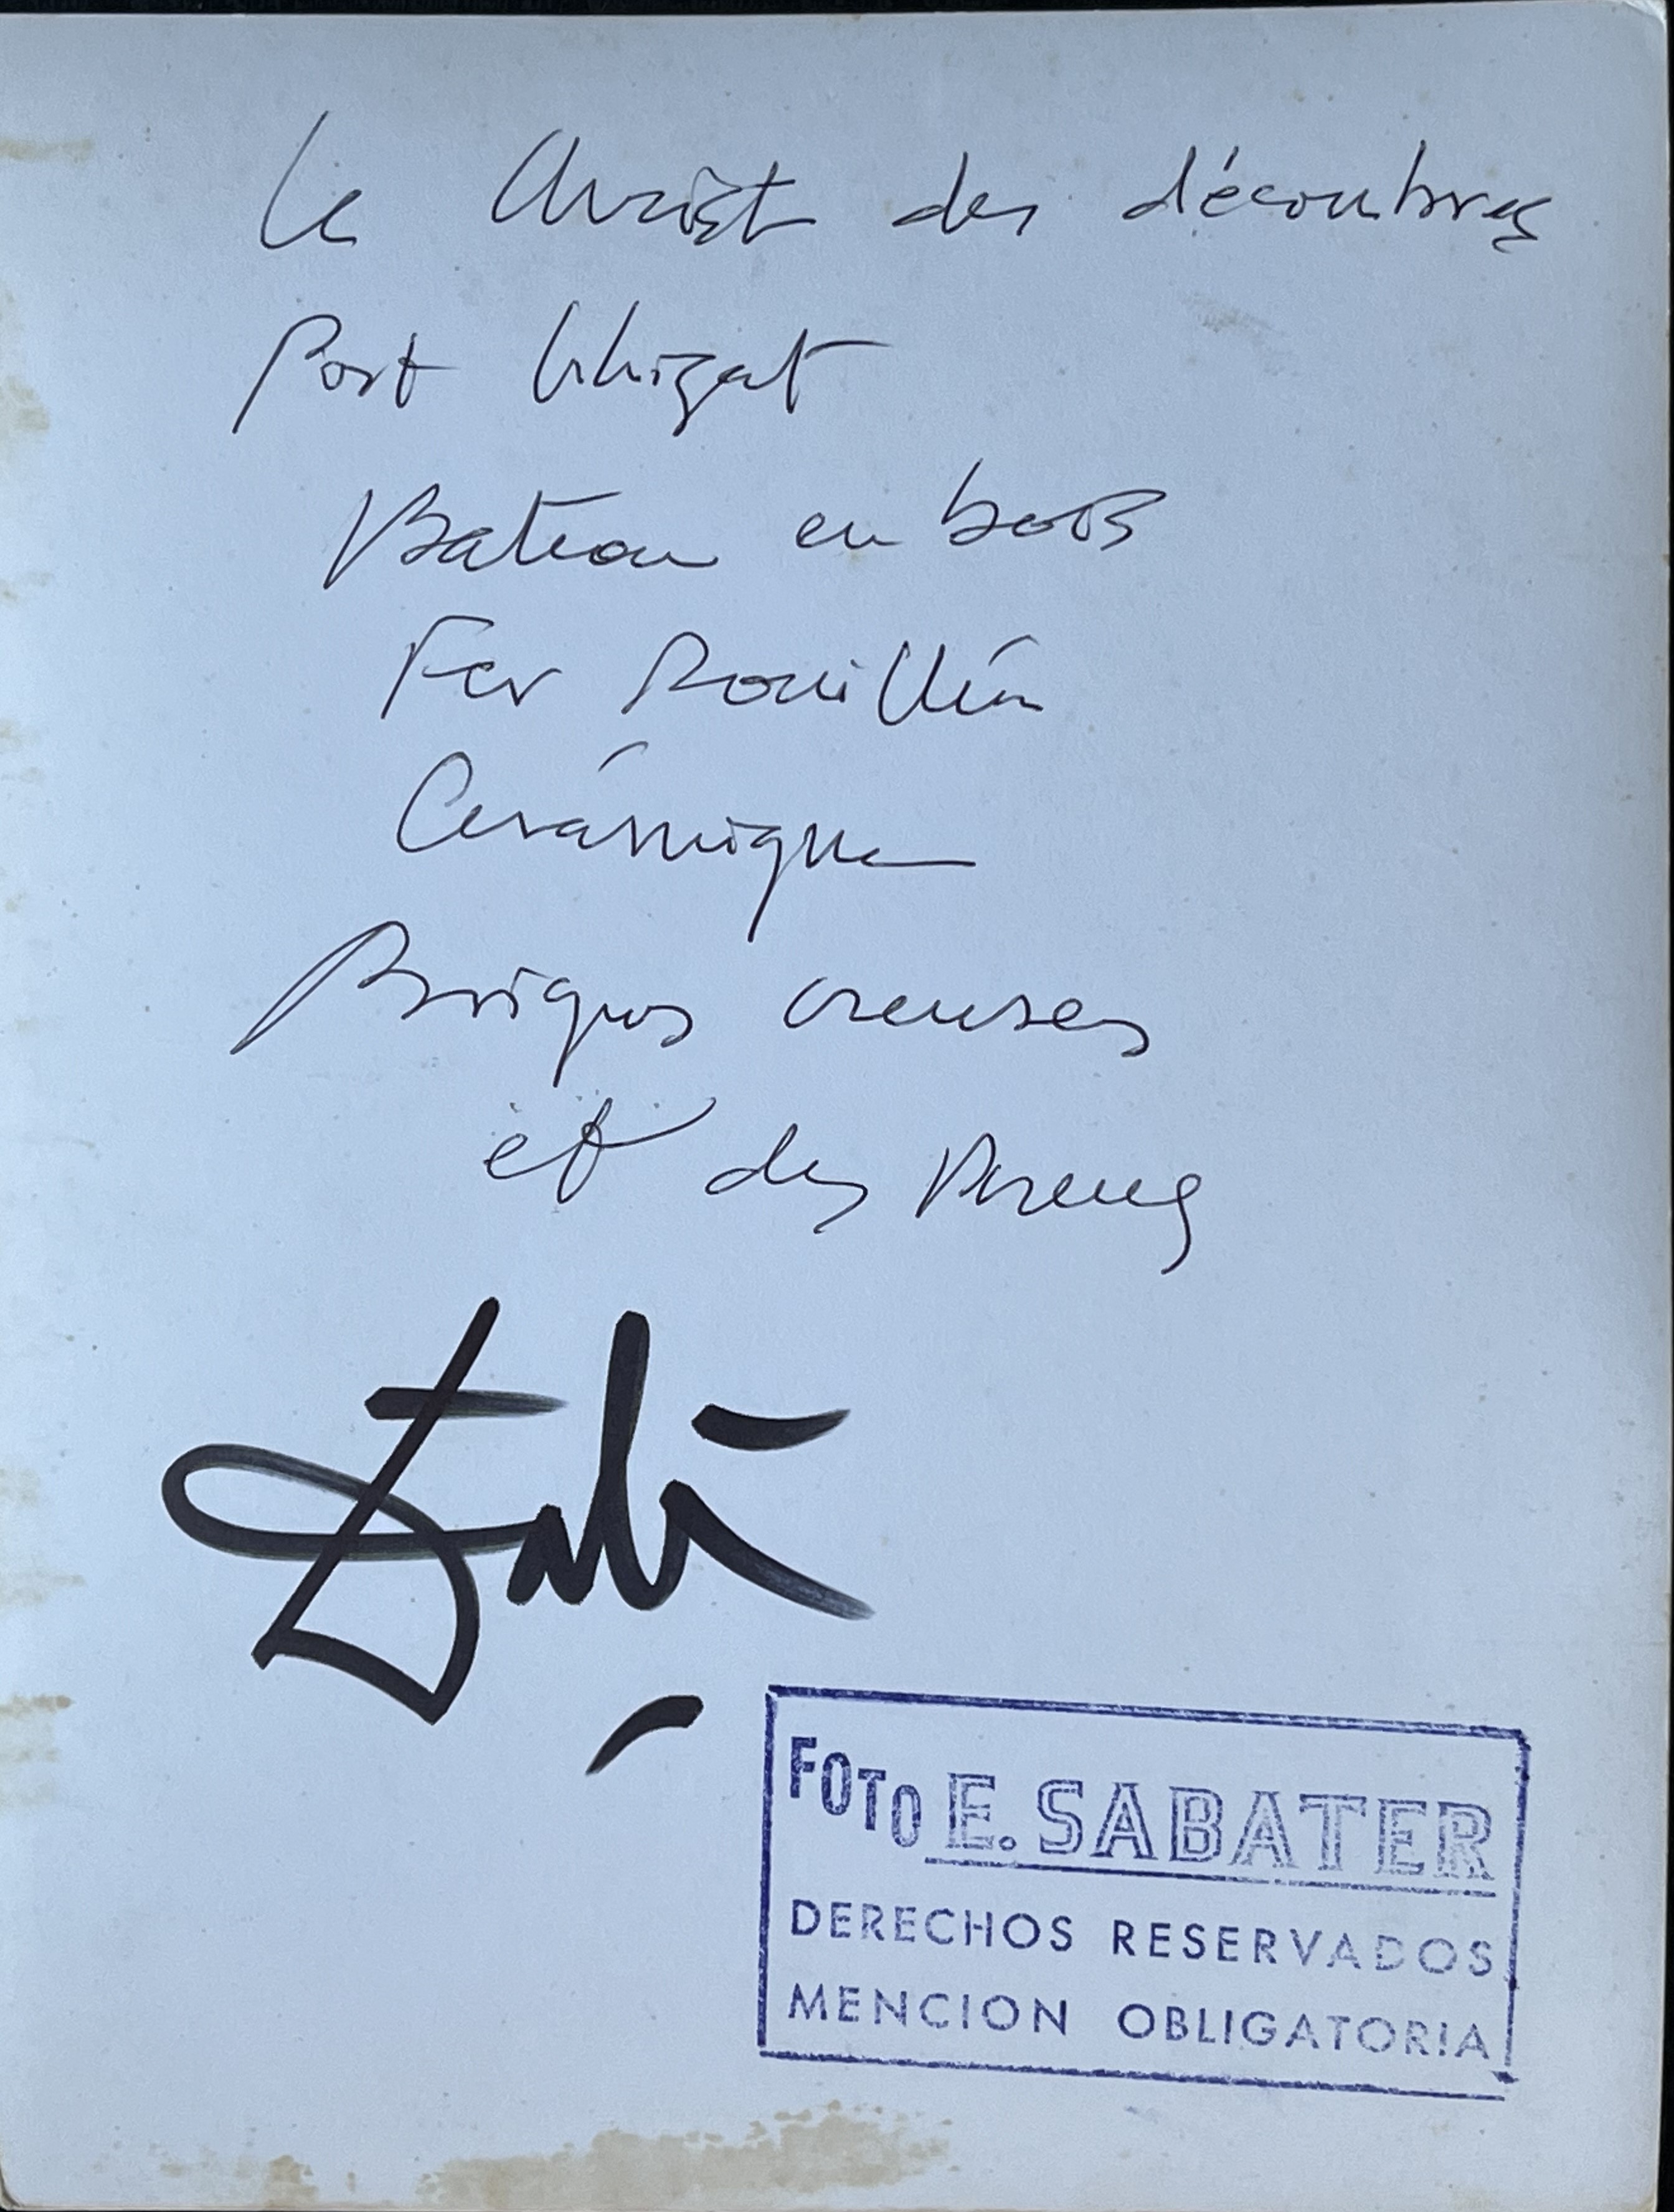 Le Christ des décombres
Port Lligat
Bateau en bois
Fer Rouillée
Cerámique
Briques creuses
et des Pneus
Dalí
FOTO E. SABATER
DERECHOS RESERVADOS
MENCION OBLIGATORIA